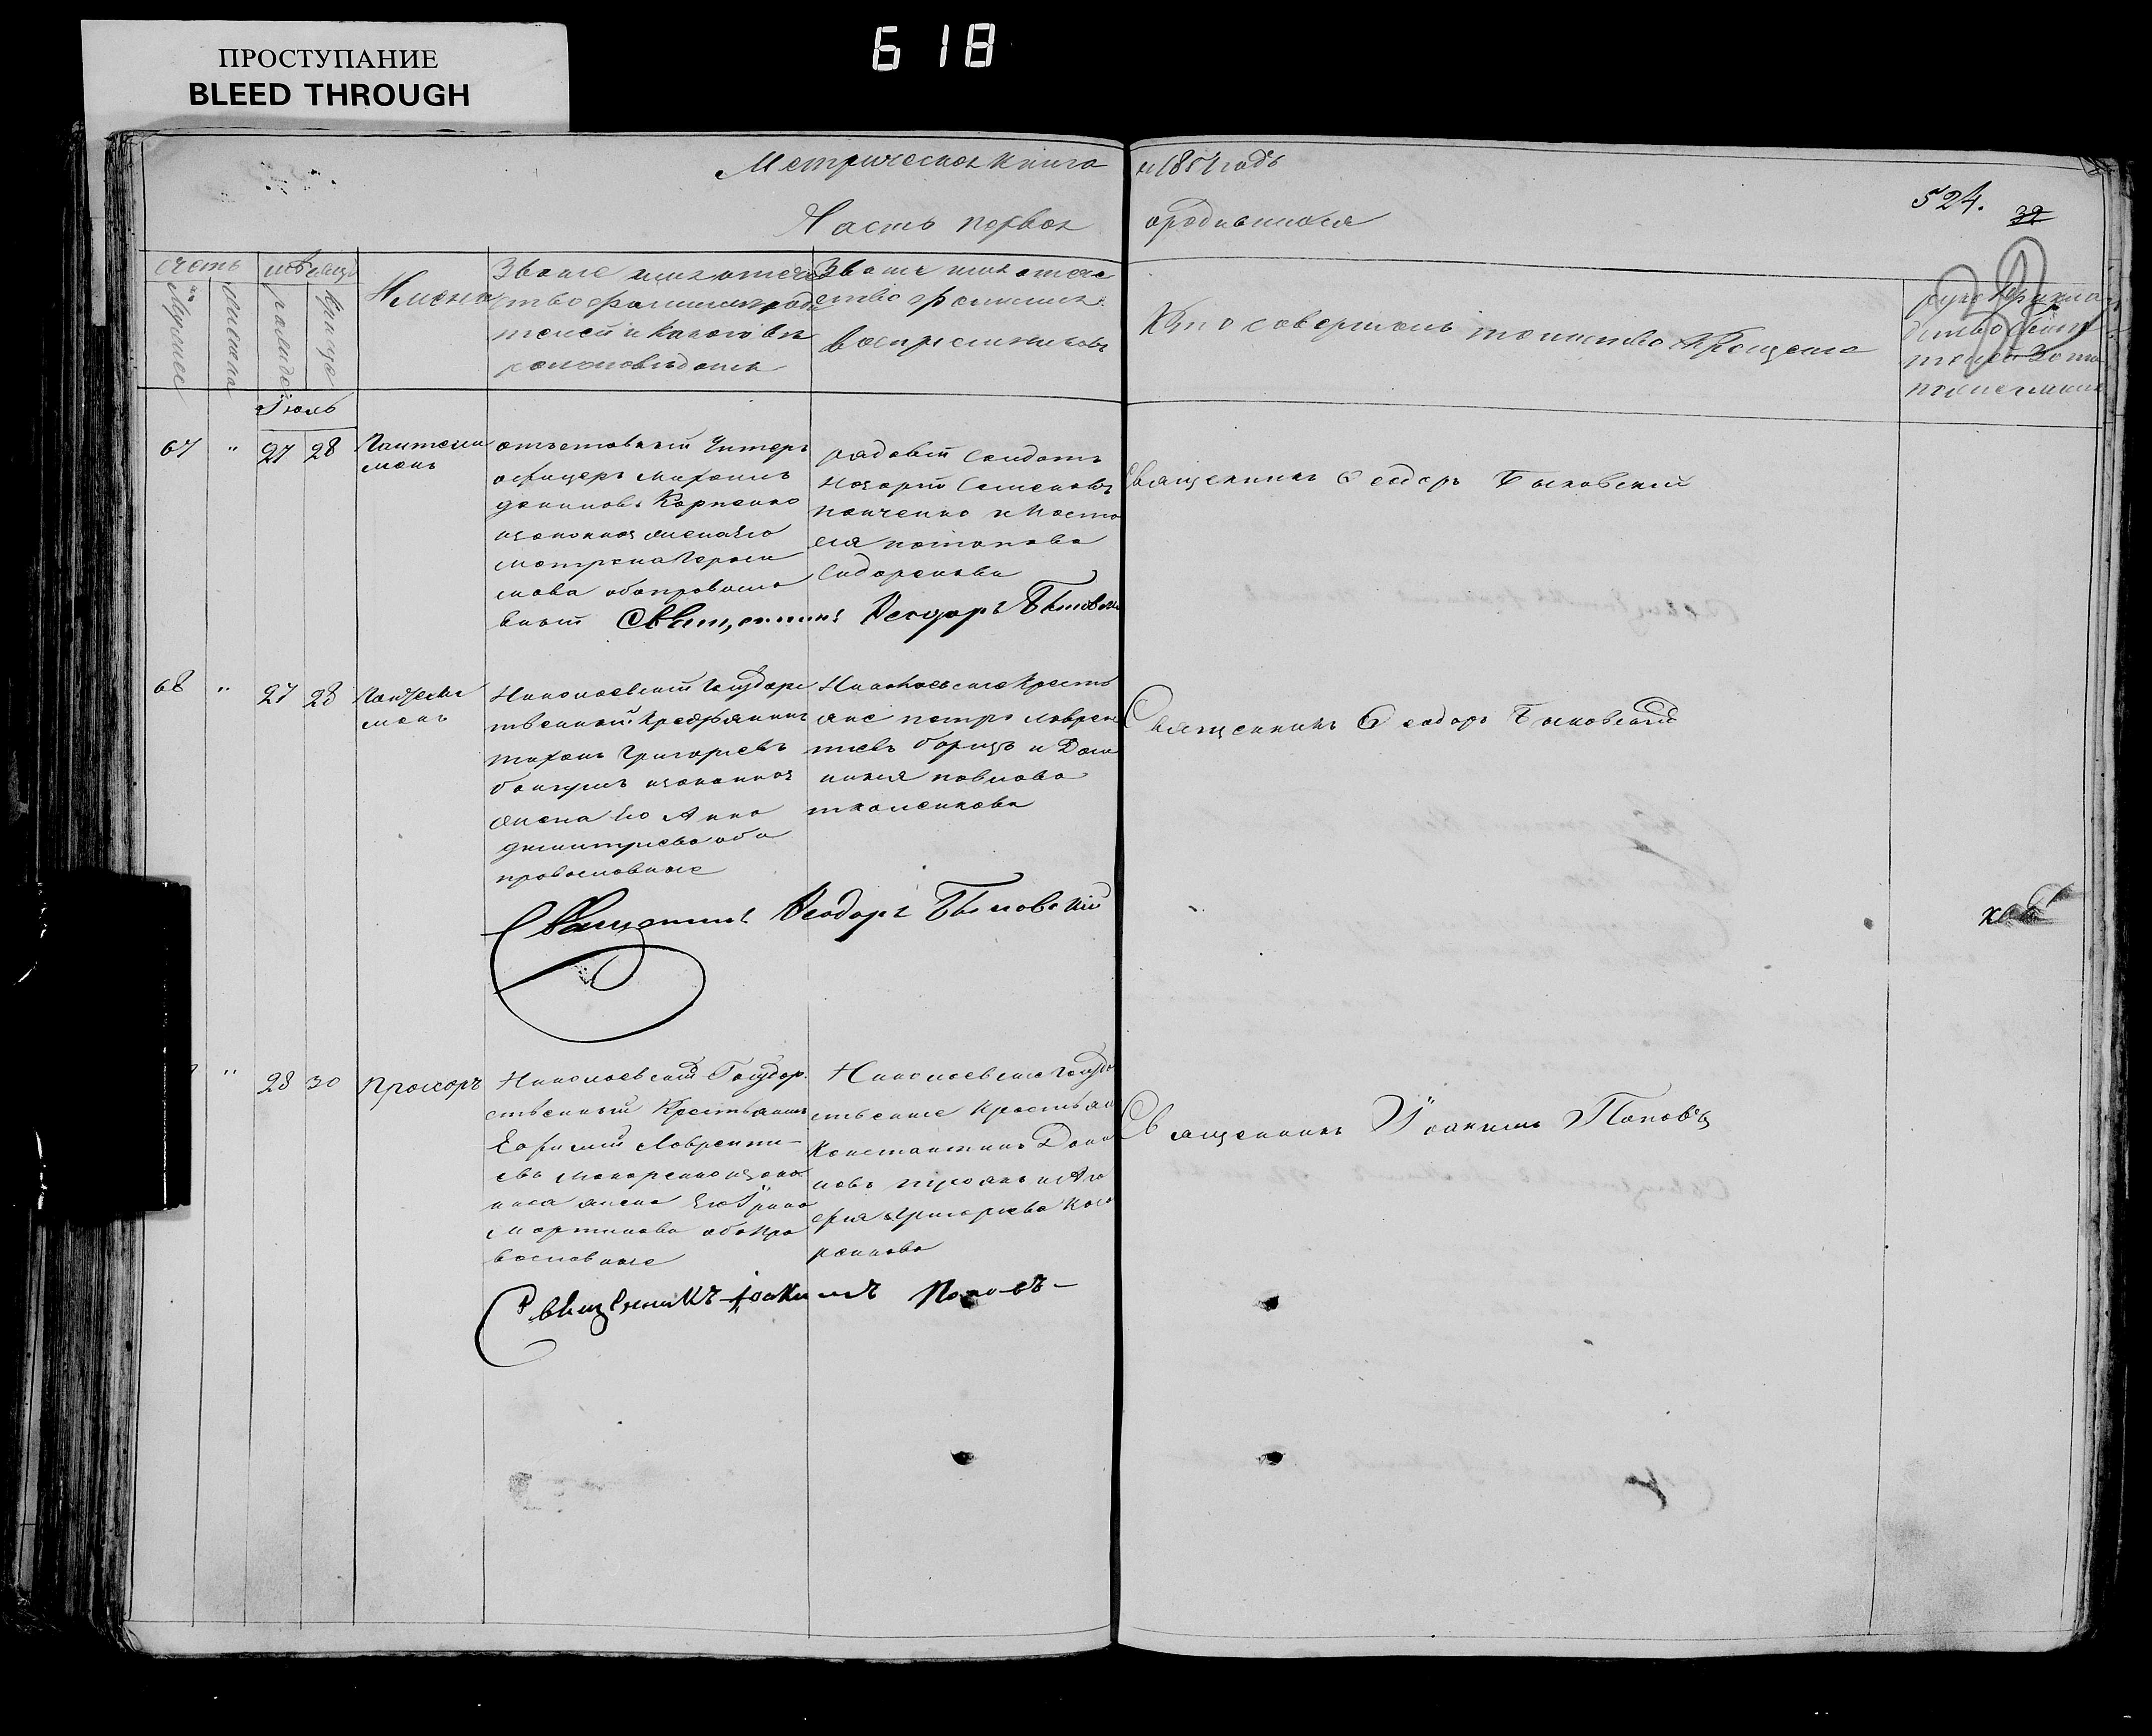 618
ПРОСТУПАНИЕ
BLEED THROUGH
Метрическая книга на 1854 годъ
524.
39
Часть первая о родившихся
счетъ
мѣсяцъ
Имена
Званіе имя отечество фамилія родителей и какого вѣроисповѣданія
Званіе имя отечество фамилія воспріемниковъ
Кто совершалъ таинство Крещенія
Мужеска
женска
рожденія
Крещенія
Іюль
67 " 27 28
Пантелеимонъ
отъставный Унтеръ
офицеръ Михаилъ
даниловъ Карпенко
изаконная жена его
матрена Гераси
мова оба православ
ный
рядовый Солдатъ
Назарій Семеновъ
панченко и Наста
сія потапова
Сидоренкова
Священникъ Ѳеодоръ Быковскій
Священникъ Ѳеодоръ Быковскій
68 " 27 28
Пантелеи
монъ
Николаевскій Государс
твенный Крестьянинъ
тихонъ Григорьевъ
изаконная
жена Его Анна
димитриева оба
православные
Николаевские Кресть
яне петръ лаврен
тиевъ борецъ и Дом
никия павлова
ткаченкова
Священникъ Ѳеодоръ Быковскій
Священникъ Ѳеодоръ Быковскій
" 28 30
Прохоръ
Николаевский Государ
ственный Крестьянинъ
Ефимий Лаврентие
въ Макаренко изако
нная жена Его Ірина
Мартинова оба пра
вославные
Николаевские Госуда
ственные Крестьяне
Константинъ Дани
ловъ троянъ и Ага
фия Григориева Мака
ренкова
Священникъ Іоакимъ Поповъ
Священникъ Іоакимъ Поповъ